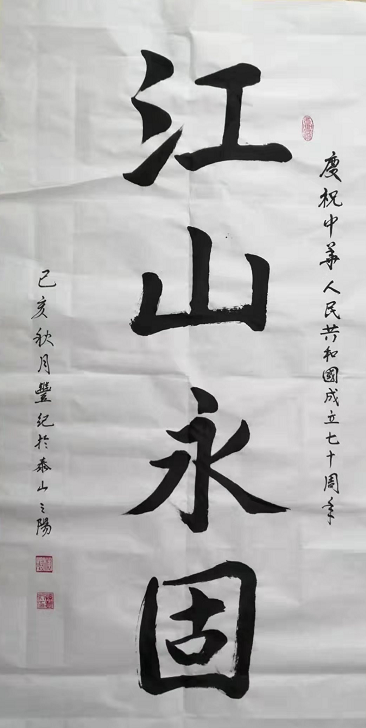 慶祝中華人民共和國成立七十周年
江山永固
己亥秋月豐紀於泰山之陽